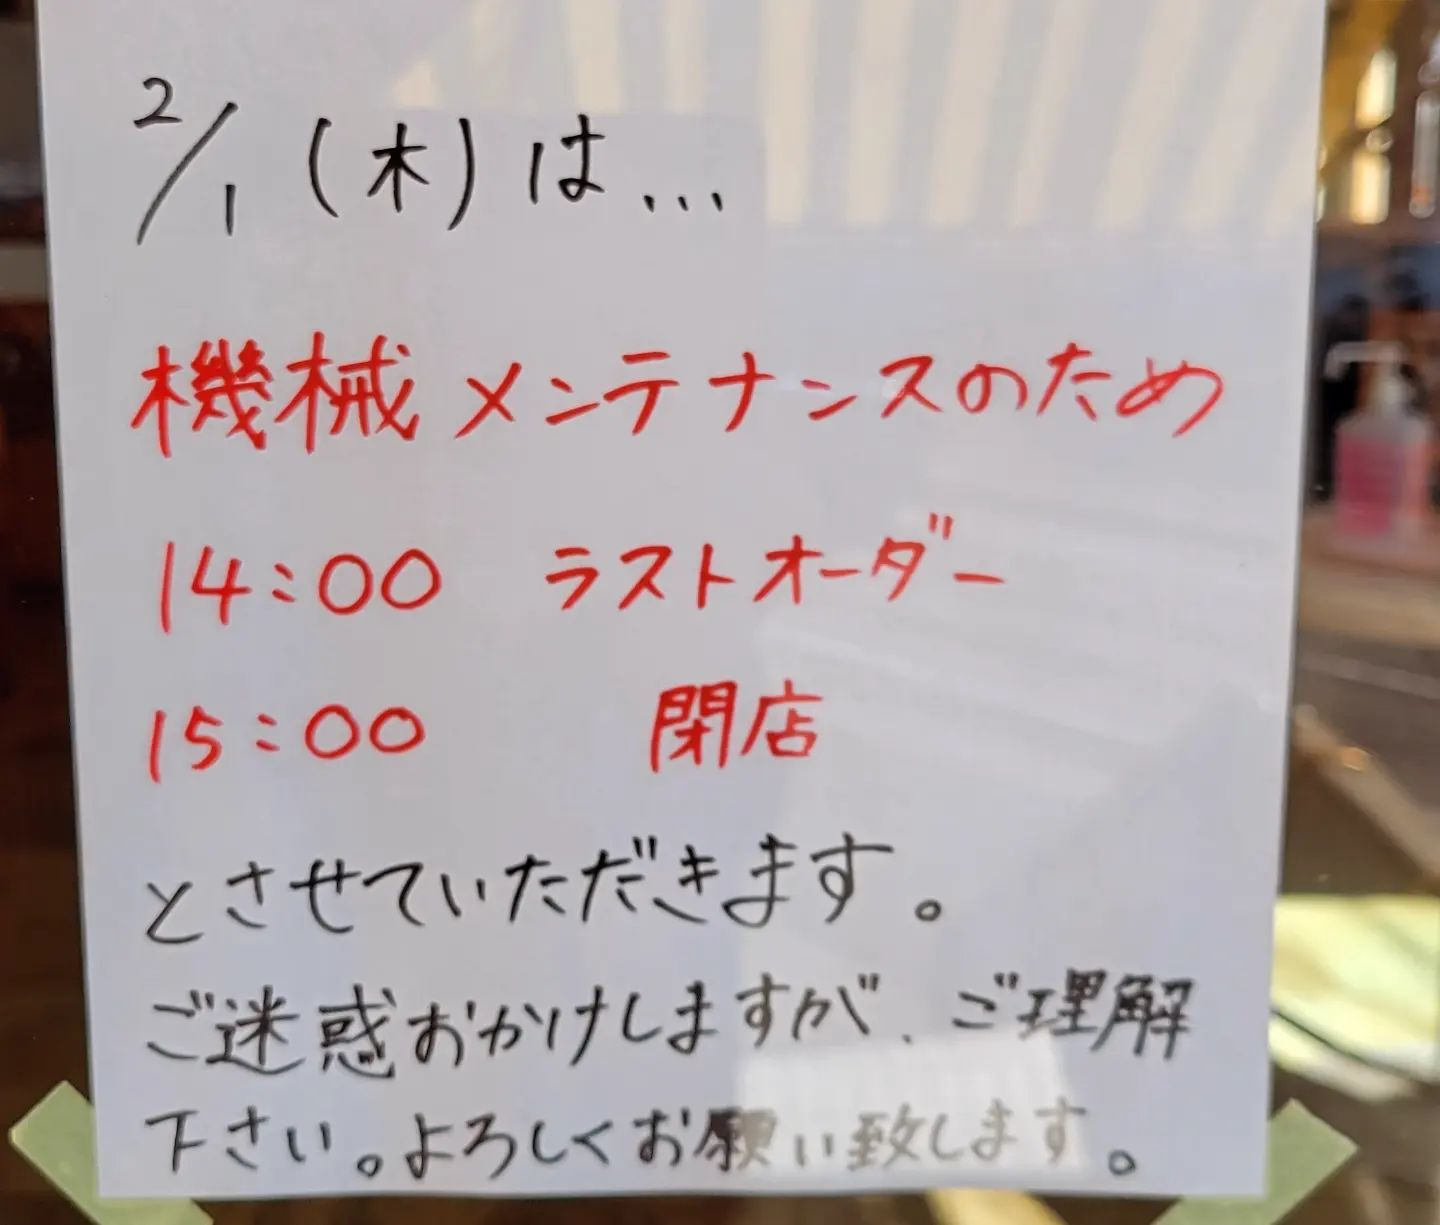 2/1(木)は...
機械メンテナンスのため
14:00 ラストオーダー
15:00 閉店
とさせていただきます。
ご迷惑おかけしますが、ご理解
下さい。よろしくお願い致します。